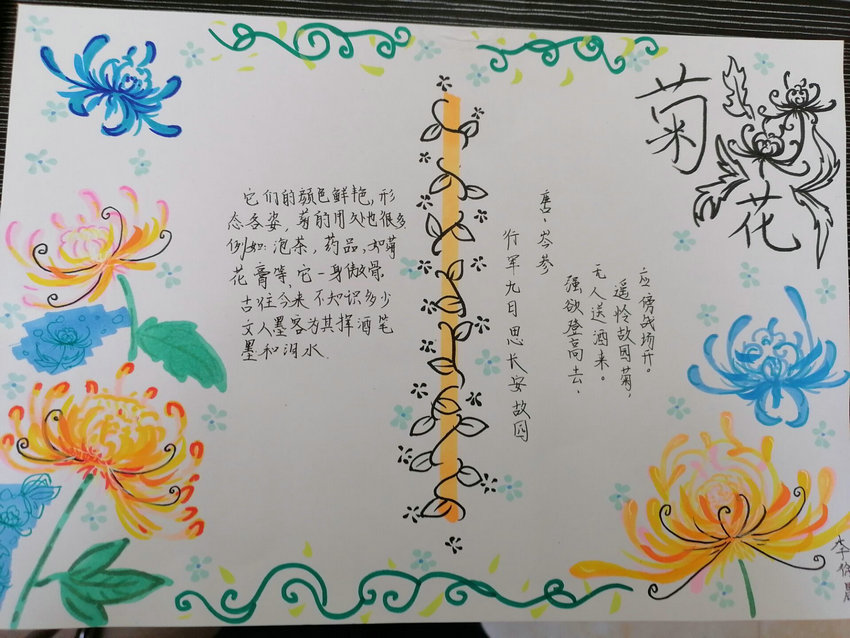 菊
花
它们的颜色鲜艳,形
态各姿,菊的用处也很多
例如:泡茶,药品,如菊
花膏等、它一身傲骨
古往今来不知识多少
文人墨客为其挥洒笔
墨和泪水.
行军九日思长安故园
唐:岑参
强欲登高去、
无人送酒来。
遥怜故园菊,
应傍战场开。
李